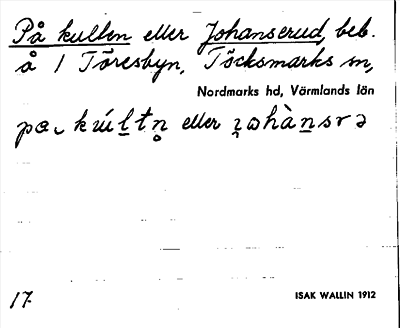 På kullen eller Johanserud, beb.
å 1 Töresbyn, Töcksmarks sn,
Nordmarks hd, Värmlands län
eller
17.
ISAK WALLIN 1912